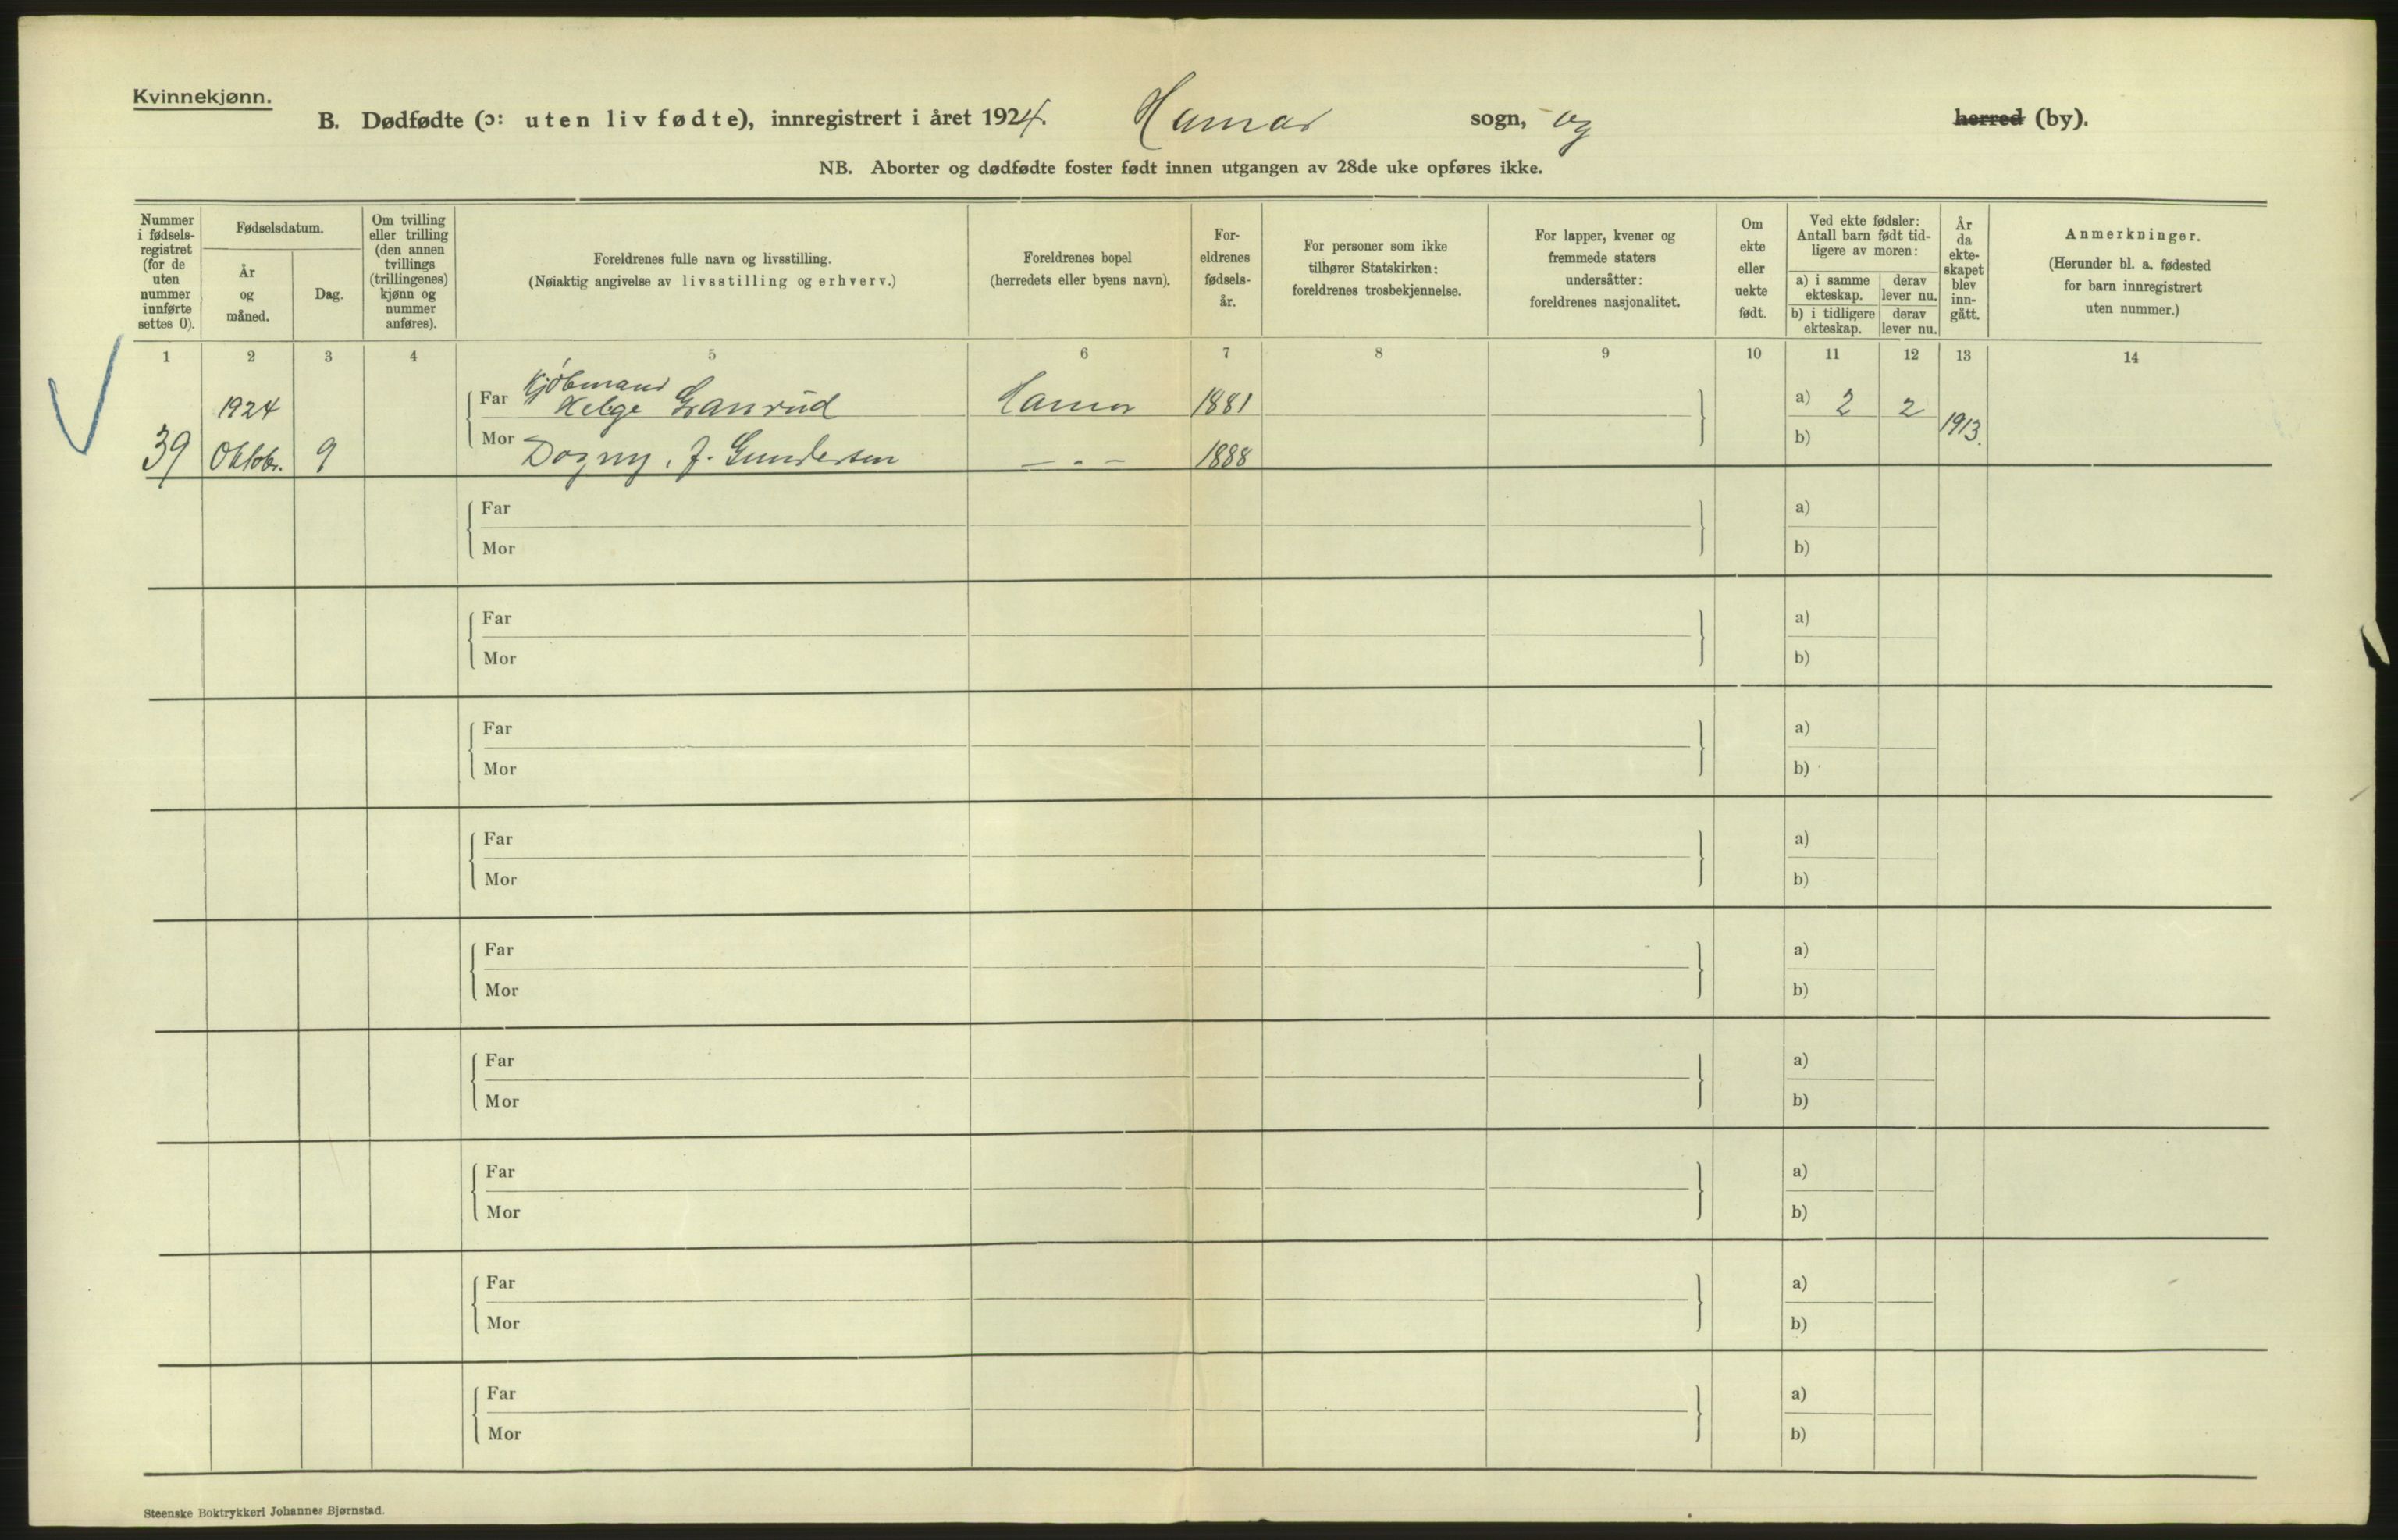 Kvinnekjønn.
B. Dødfødte (ɔ: uten liv fødte), innregistrert i året 1924. Hamar sogn, og herred (by).
NB. Aborter og dødfødte foster født innen utgangen av 28de uke opføres ikke.
Nummer i fødsels-registret (for de uten nummer innførte settes 0).
Fødselsdatum.
År og måned.
Dag.
Om tvilling eller trilling (den annen tvillings (trillingenes) kjønn og nummer anføres).
Foreldrenes fulle navn og livsstilling.
(Nøiaktig angivelse av livsstilling og erhverv.)
Foreldrenes bopel
(herredets eller byens navn).
For-eldrenes fødsels-år.
For personer som ikke tilhører Statskirken: foreldrenes trosbekjennelse.
For lapper, kvener og fremmede staters undersåtter: foreldrenes nasjonalitet.
Om ekte eller uekte født.
Ved ekte fødsler: Antall barn født tid-ligere av moren:
a) i samme ekteskap.
derav lever nu.
b) i tidligere ekteskap.
derav lever nu.
År da ekte-skapet blev inn-gått.
Anmerkninger.
(Herunder bl. a. fødested for barn innregistrert uten nummer.)
1 2 3 4 5 6 7 8 9 10 11 12 13 14
Kjøbmand
1924 Far Helge Granrud Hamar 1881 a) 2 2 1913.
39 Oktobr. 9 Mor Dagny, f. Gundersen — " — 1888 b)
Far a)
Mor b)
Far a)
Mor b)
Far a)
Mor b)
Far a)
Mor b)
Far a)
Mor b)
Far a)
Mor b)
Far a)
Mor b)
Far a)
Mor b)
Far a)
Mor b)
Steenske Boktrykkeri Johannes Bjørnstad.